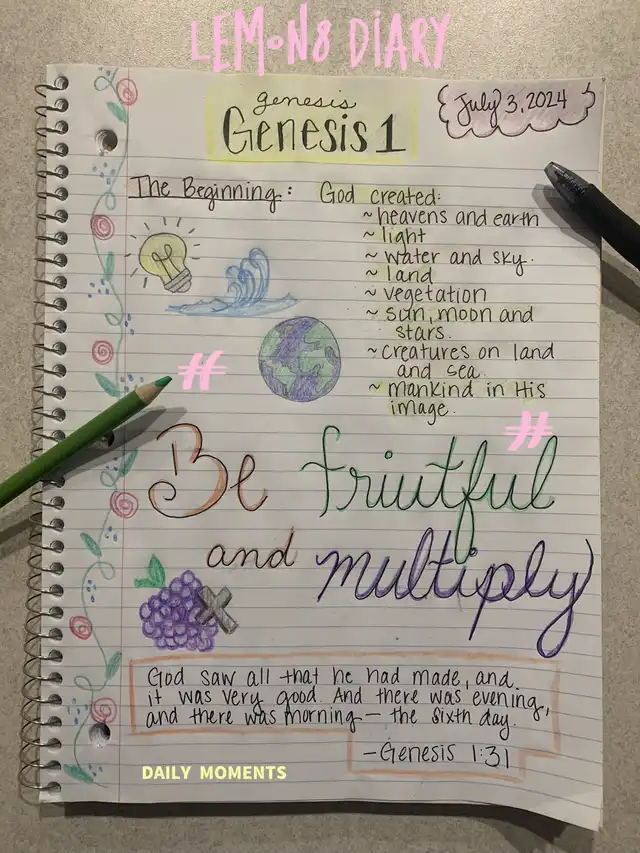 LEMON8 DIARY
genesis
Genesis 1
July 3, 2024
The Beginning:
God created:
~ heavens and earth
~ light
~ water and sky.
~ land
~ vegetation
~ sun, moon and
stars.
~ creatures on land
and sea.
~ mankind in His
image.
#
#
Be friutful
and multiply
God saw all that he had made, and
it was very good. And there was evening,
and there was morning — the sixth day.
—Genesis 1:31
DAILY MOMENTS